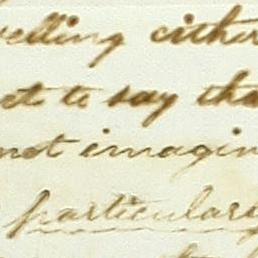 velling either
et to say tha
not imagin
particulars